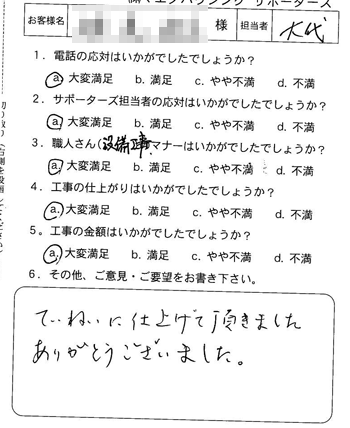 ㈱マエノハウジング サポーターズ
お客様名 様 担当者 大代
1．電話の応対はいかがでしたでしょうか？
a. 大変満足 b. 満足 c. やや不満 d. 不満
2．サポーターズ担当者の応対はいかがでしたでしょうか？
a. 大変満足 b. 満足 c. やや不満 d. 不満
3．職人さん（設備工事 マナーはいかがでしたでしょうか？
a. 大変満足 b. 満足 c. やや不満 d. 不満
4．工事の仕上がりはいかがでしたでしょうか？
a. 大変満足 b. 満足 c. やや不満 d. 不満
5。工事の金額はいかがでしたでしょうか？
a. 大変満足 b. 満足 c. やや不満 d. 不満
6．その他、ご意見・ご要望をお書き下さい。
ていねいに仕上げて頂きました
ありがとうございました。